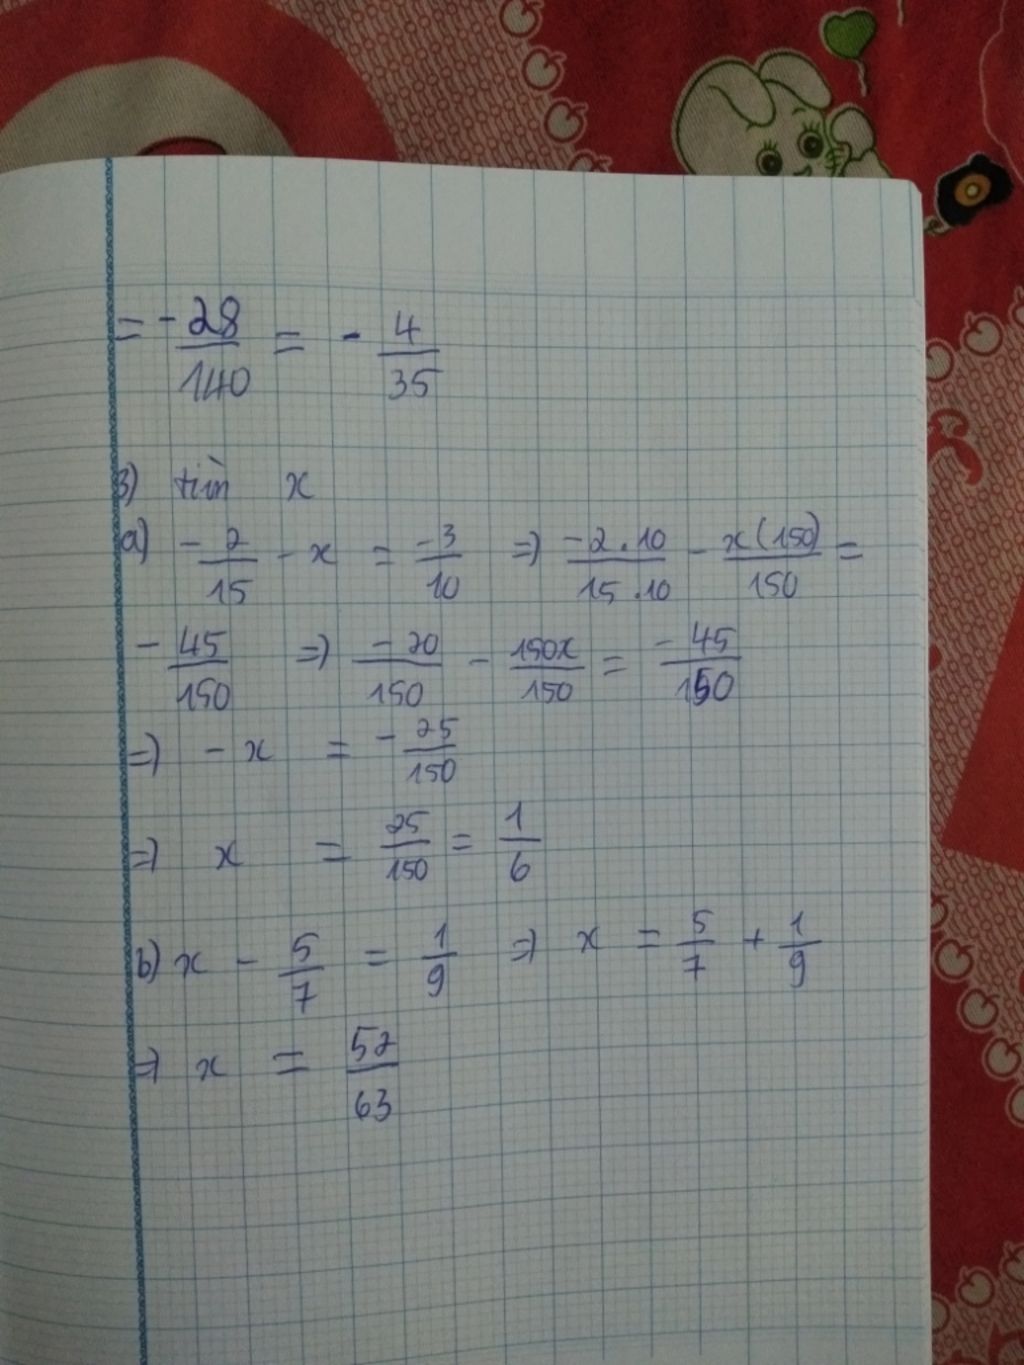 = -28/140 = - 4/35
3) tìm x
a) - 2/15 - x = -3/10 => -2.10/15.10 - x(150)/150 =
- 45/150 => -20/150 - 150x/150 = -45/150
=> - x = - 25/150
=> x = 25/150 = 1/6
b) x - 5/7 = 1/9 => x = 5/7 + 1/9
=> x = 52/63